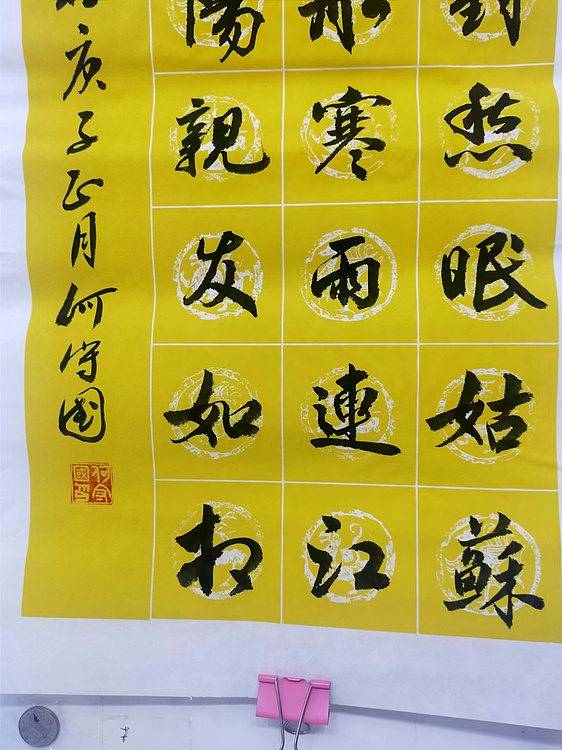 對愁眠姑蘇
船寒雨連江
陽親友如相
庚子正月何守國
何守國印